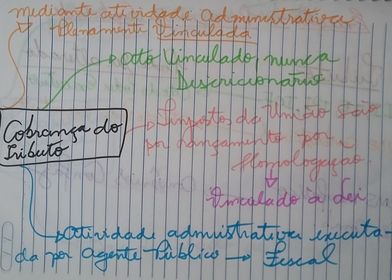 mediante atividade administrativa
Planamente Vinculada
Ato Vinculado, nunca
Descricionário
Cobrança do
Tributo
Impostos da União são
por lançamento por
Homologação
Vinculado à Lei
Atividade administrativa executa-
da por agente Público → Fiscal